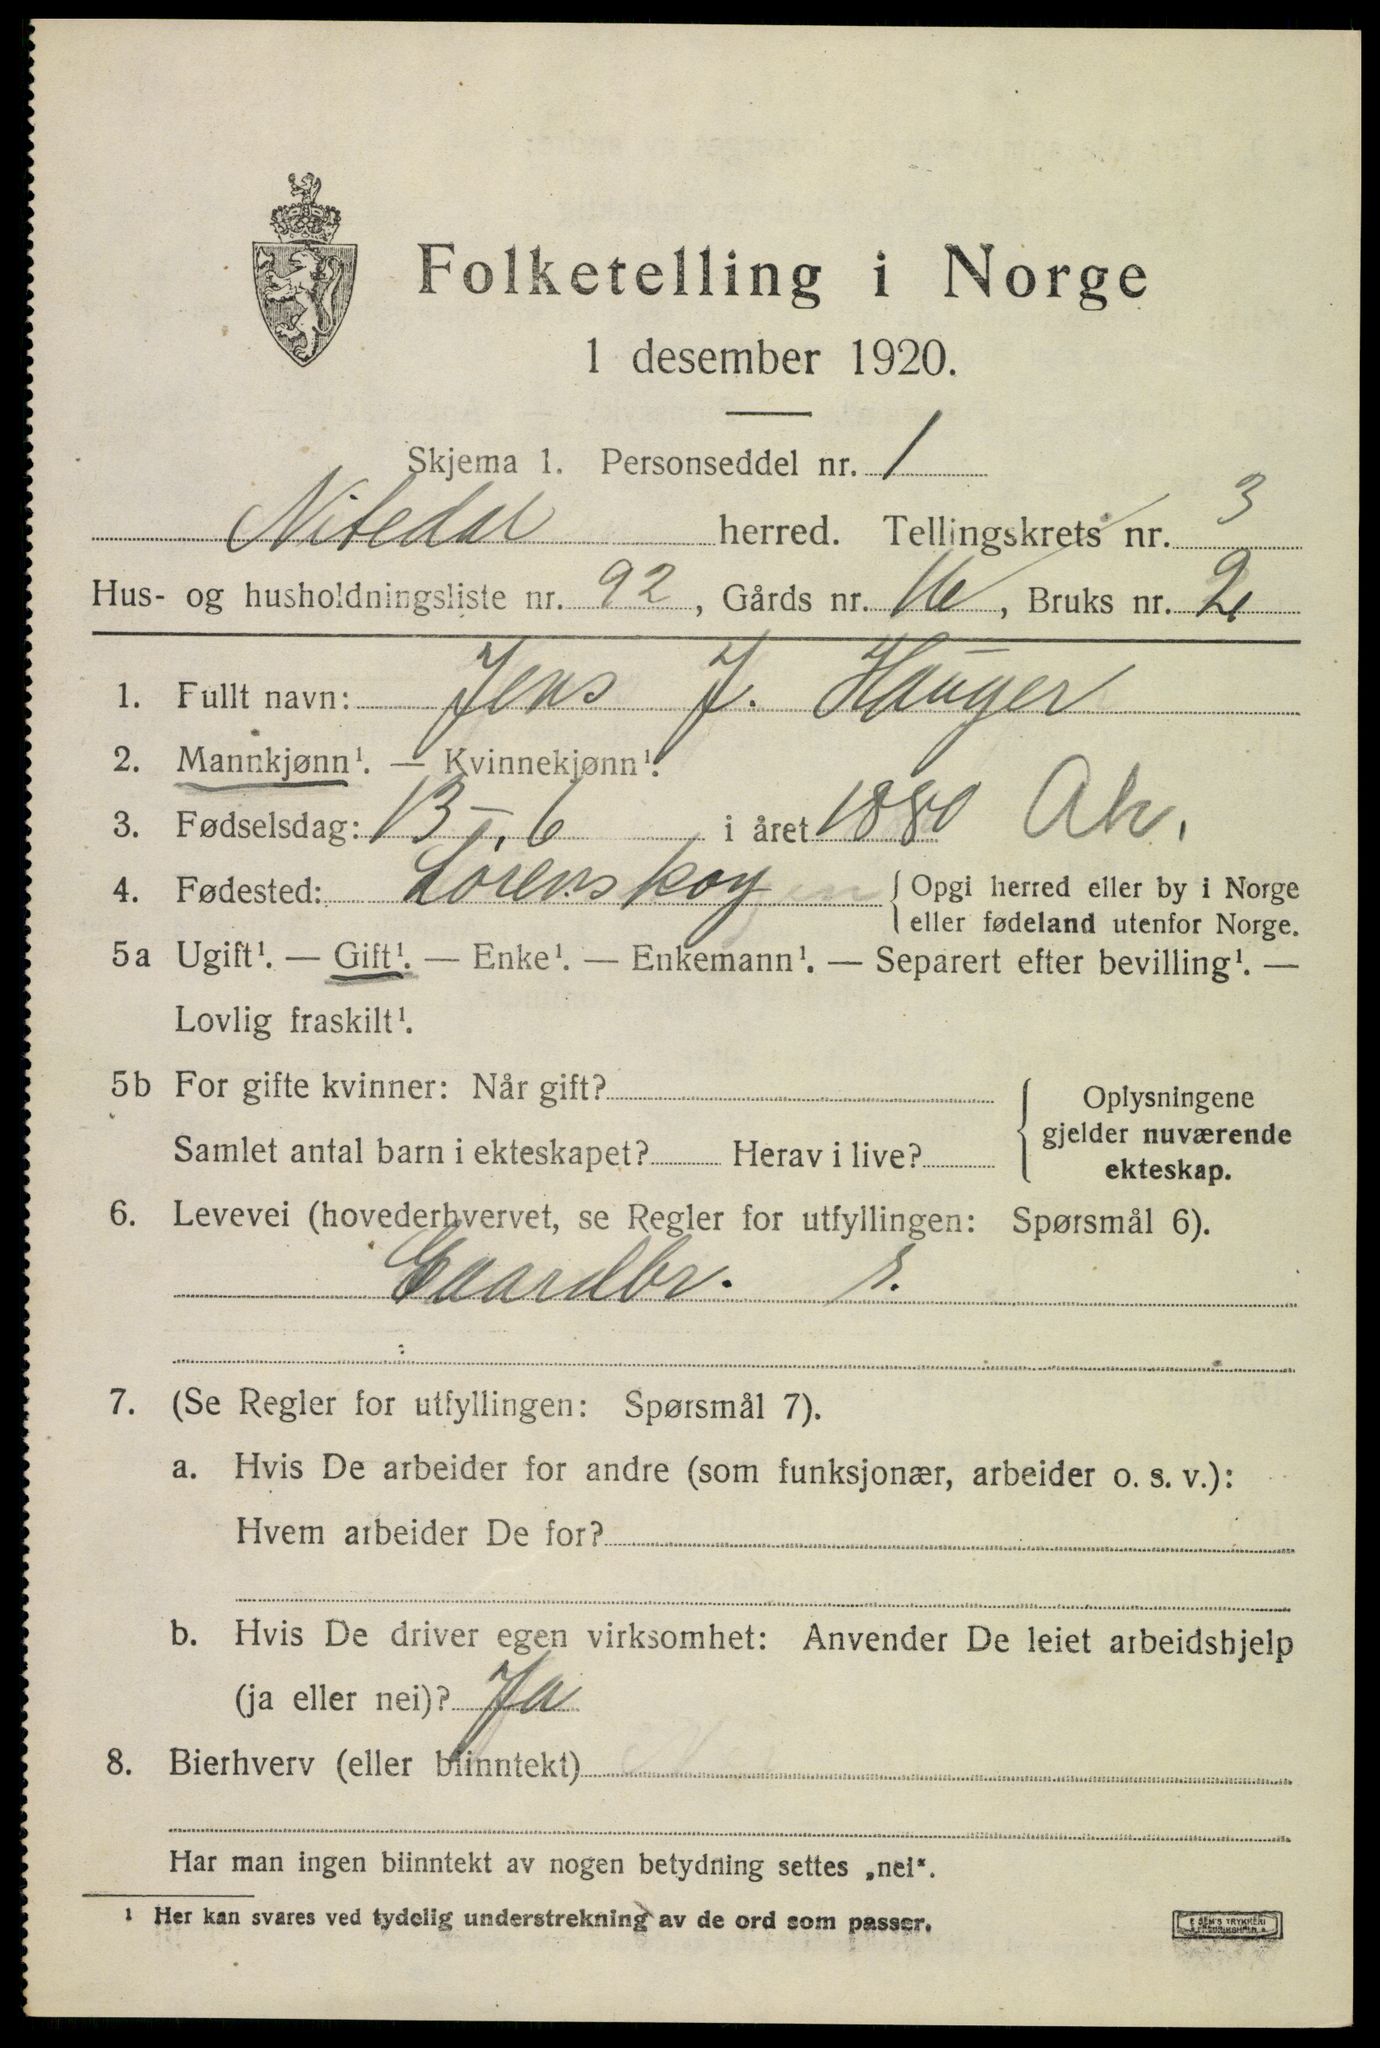 Folketelling i Norge
1 desember 1920.
Skjema 1. Personseddel nr. 1
Nitedal herred. Tellingskrets nr. 3
Hus- og husholdningsliste nr. 92, Gårds nr. 16, Bruks nr. 2
1. Fullt navn: Jens J. Hauger
2. Mannkjønn¹. — Kvinnekjønn¹.
3. Fødselsdag: 13 - 6 i året 1880 Ak.
4. Fødested: Lorenskog { Opgi herred eller by i Norge
eller fødeland utenfor Norge.
5a Ugift¹. — Gift¹. — Enke¹. — Enkemann¹. — Separert efter bevilling¹. —
Lovlig fraskilt¹.
5b For gifte kvinner: Når gift?
Samlet antal barn i ekteskapet? Herav i live?
{ Oplysningene
gjelder nuværende
ekteskap.
6. Levevei (hovederhvervet, se Regler for utfyllingen: Spørsmål 6).
Gaardbr. s.
7. (Se Regler for utfyllingen: Spørsmål 7).
a. Hvis De arbeider for andre (som funksjonær, arbeider o. s. v.):
Hvem arbeider De for?
b. Hvis De driver egen virksomhet: Anvender De leiet arbeidshjelp
(ja eller nei)? Ja
8. Bierhverv (eller biinntekt)
Har man ingen biinntekt av nogen betydning settes „nei“.
¹ Her kan svares ved tydelig understrekning av de ord som passer.
SEM'S TRYKKERI
FREDRIKSHALD